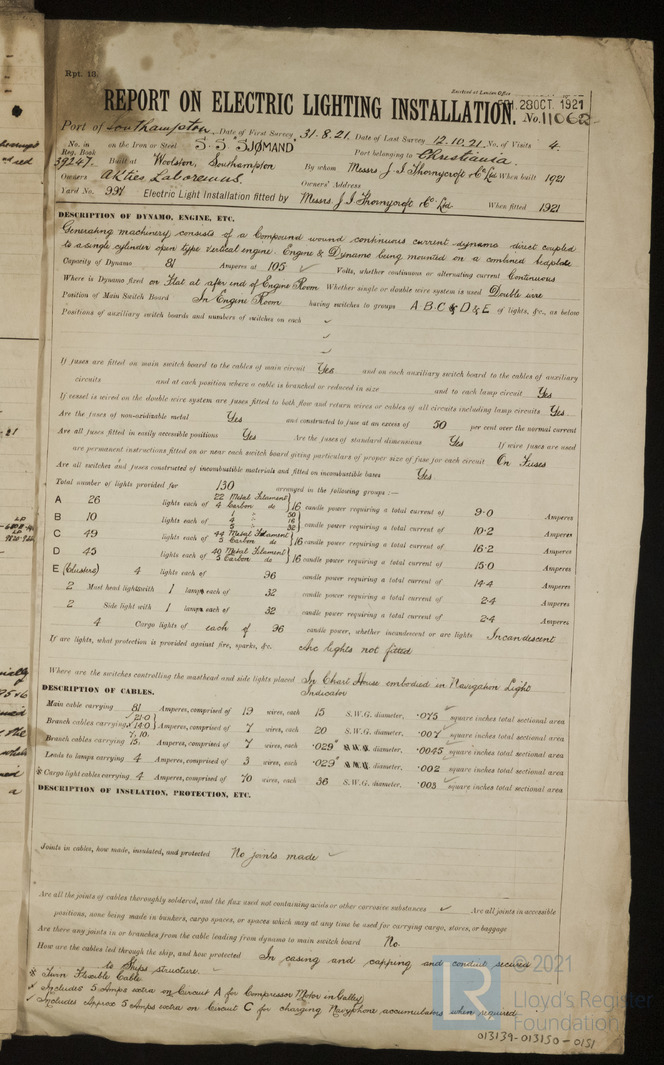 Rpt. 13.
Received at London Office
REPORT ON ELECTRIC LIGHTING INSTALLATION.
FRI. 28 OCT. 1921
No. 11062
Port of Southampton Date of First Survey 31.8.21. Date of Last Survey 12.10.21 No. of Visits 4.
No. in Reg. Book 39247. on the Iron or Steel S.S. SJØMAND Port belonging to Christiania.
Built at Woolston, Southampton By whom Messrs J I Thornycroft & Co Ltd When built 1921
Owners Akties Laboremus. Owners' Address
Yard No. 997 Electric Light Installation fitted by Messrs J I Thornycroft & Co. Ltd When fitted 1921
DESCRIPTION OF DYNAMO, ENGINE, ETC.
Generating machinery consists of a Compound wound continuous current dynamo direct coupled
to a single cylinder open type vertical engine. Engine & Dynamo being mounted on a combined bedplate
Capacity of Dynamo 81 Amperes at 105 Volts, whether continuous or alternating current Continuous
Where is Dynamo fixed on Flat at after end of Engine Room Whether single or double wire system is used Double wire
Position of Main Switch Board In Engine Room having switches to groups A B C & D & E of lights, &c., as below
Positions of auxiliary switch boards and numbers of switches on each
If fuses are fitted on main switch board to the cables of main circuit Yes and on each auxiliary switch board to the cables of auxiliary
circuits and at each position where a cable is branched or reduced in size and to each lamp circuit Yes
If vessel is wired on the double wire system are fuses fitted to both flow and return wires or cables of all circuits including lamp circuits Yes
Are the fuses of non-oxidizable metal Yes and constructed to fuse at an excess of 50 per cent over the normal current
Are all fuses fitted in easily accessible positions Yes Are the fuses of standard dimensions Yes If wire fuses are used
are permanent instructions fitted on or near each switch board giving particulars of proper size of fuse for each circuit On Fuses
Are all switches and fuses constructed of incombustible materials and fitted on incombustible bases Yes
Total number of lights provided for 130 arranged in the following groups :—
A 26 lights each of 22 Metal Filament 4 Carbon do } 16 candle power requiring a total current of 9.0 Amperes
B 10 lights each of 1 " 50 4 " 16 5 " 32 } candle power requiring a total current of 10.2 Amperes
C 49 lights each of 44 Metal Filament 5 Carbon do } 16 candle power requiring a total current of 16.2 Amperes
D 45 lights each of 40 Metal Filament 5 Carbon do } 16 candle power requiring a total current of 15.0 Amperes
E (Clusters) 4 lights each of 96 candle power requiring a total current of 14.4 Amperes
2 Mast head light with 1 lamp each of 32 candle power requiring a total current of 2.4 Amperes
2 Side light with 1 lamp each of 32 candle power requiring a total current of 2.4 Amperes
4 Cargo lights of each of 96 candle power, whether incandescent or arc lights Incandescent
If arc lights, what protection is provided against fire, sparks, &c. Arc lights not fitted
Where are the switches controlling the masthead and side lights placed In Chart House embodied in Navigation Light
Indicator
DESCRIPTION OF CABLES.
Main cable carrying 81 Amperes, comprised of 19 wires, each 15 S.W.G. diameter, .075 square inches total sectional area
Branch cables carrying 21.0 14.0 } Amperes, comprised of 7 wires, each 20 S.W.G. diameter, .007 square inches total sectional area
Branch cables carrying 7, 10. 15. Amperes, comprised of 7 wires, each .029" S.W.G. diameter, .0045 square inches total sectional area
Leads to lamps carrying 4 Amperes, comprised of 3 wires, each .029" S.W.G. diameter, .002 square inches total sectional area
※ Cargo light cables carrying 4 Amperes, comprised of 70 wires, each 36 S.W.G. diameter, .003 square inches total sectional area
DESCRIPTION OF INSULATION, PROTECTION, ETC.
Joints in cables, how made, insulated, and protected No joints made
Are all the joints of cables thoroughly soldered, and the flux used not containing acids or other corrosive substances Are all joints in accessible
positions, none being made in bunkers, cargo spaces, or spaces which may at any time be used for carrying cargo, stores, or baggage
Are there any joints in or branches from the cable leading from dynamo to main switch board No.
How are the cables led through the ship, and how protected In casing and capping and conduit secured
to Ships structure.
※ Twin Flexible Cable
✓ Includes 5 Amps extra on Circuit A for Compressor Motor in Galley
✓ Includes Approx 5 Amps extra on Circuit C for charging Navyphone accumulators when required
© 2021
LR
Lloyd's Register
Foundation
013139-013150-0151